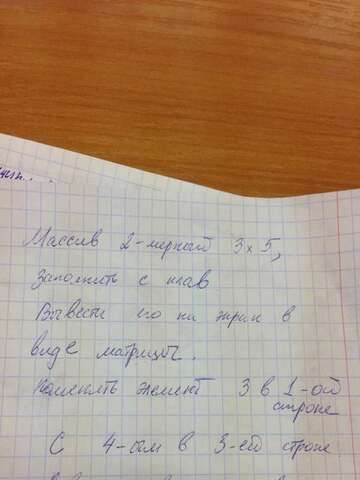 Массив 2-мерный 3х5,
заполнить с клав
Вывести его на экран в
виде матрицы.
Поменять элемент 3 в 1-ой
строке
С 4-ым в 3-ей строке